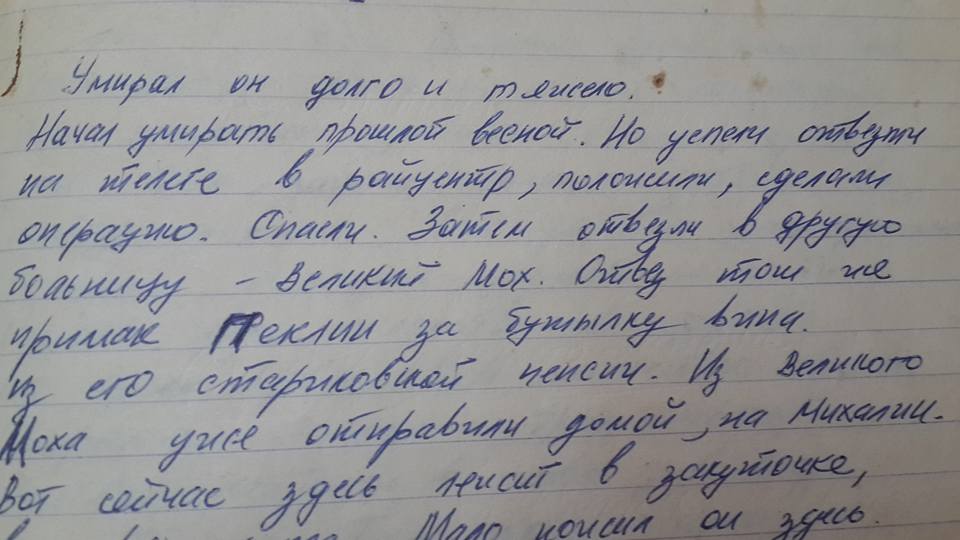 Умирал он долго и тяжело.
Начал умирать прошлой весной. Но успели отвезти
на телеге в райцентр, положили, сделали
операцию. Спасли. Затем отвезли в другую
больницу - Великий Мох. Отвез тот же
примак Феклин за бутылку вина.
из его стариковской пенсии. Из Великого
Моха уже отправили домой, на Михалин.
Вот сейчас здесь лежит в закуточке,
Мало пожил он здесь.